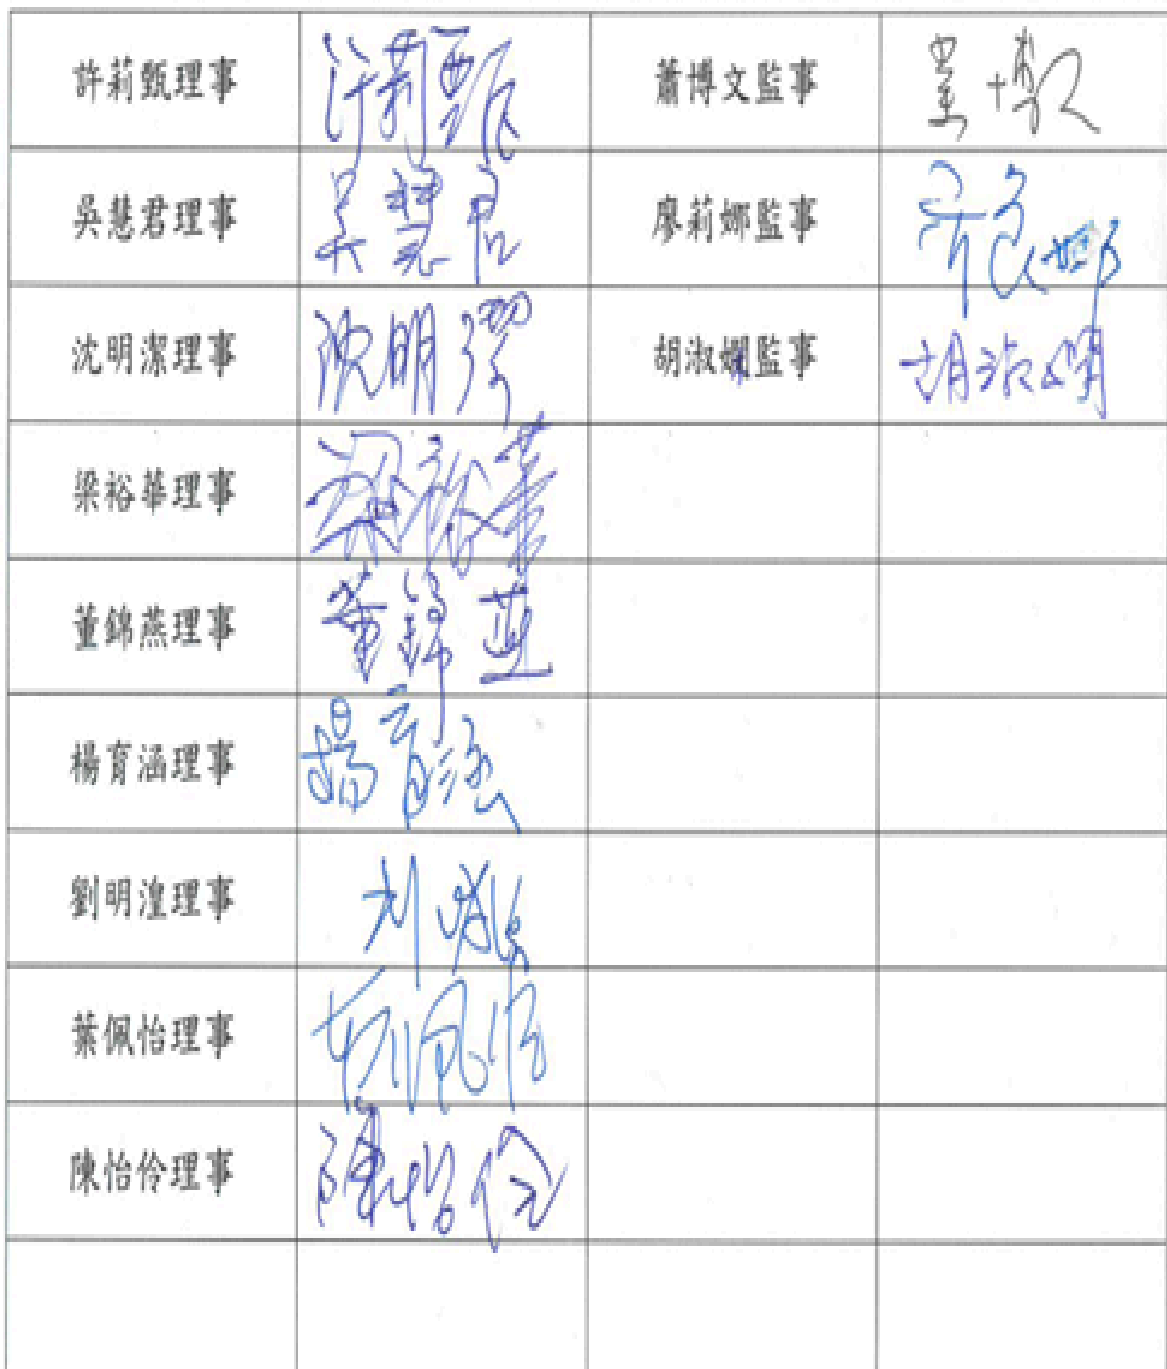 許莉甄理事 許莉甄 蕭博文監事
吳慧君理事 吳慧君 廖莉娜監事
沈明潔理事 沈明潔 胡淑嫻監事 胡淑嫻
梁裕華理事 梁裕華
董錦燕理事 董錦燕
楊育涵理事 楊育涵
劉明湟理事
葉佩怡理事 葉佩怡
陳怡伶理事 陳怡伶